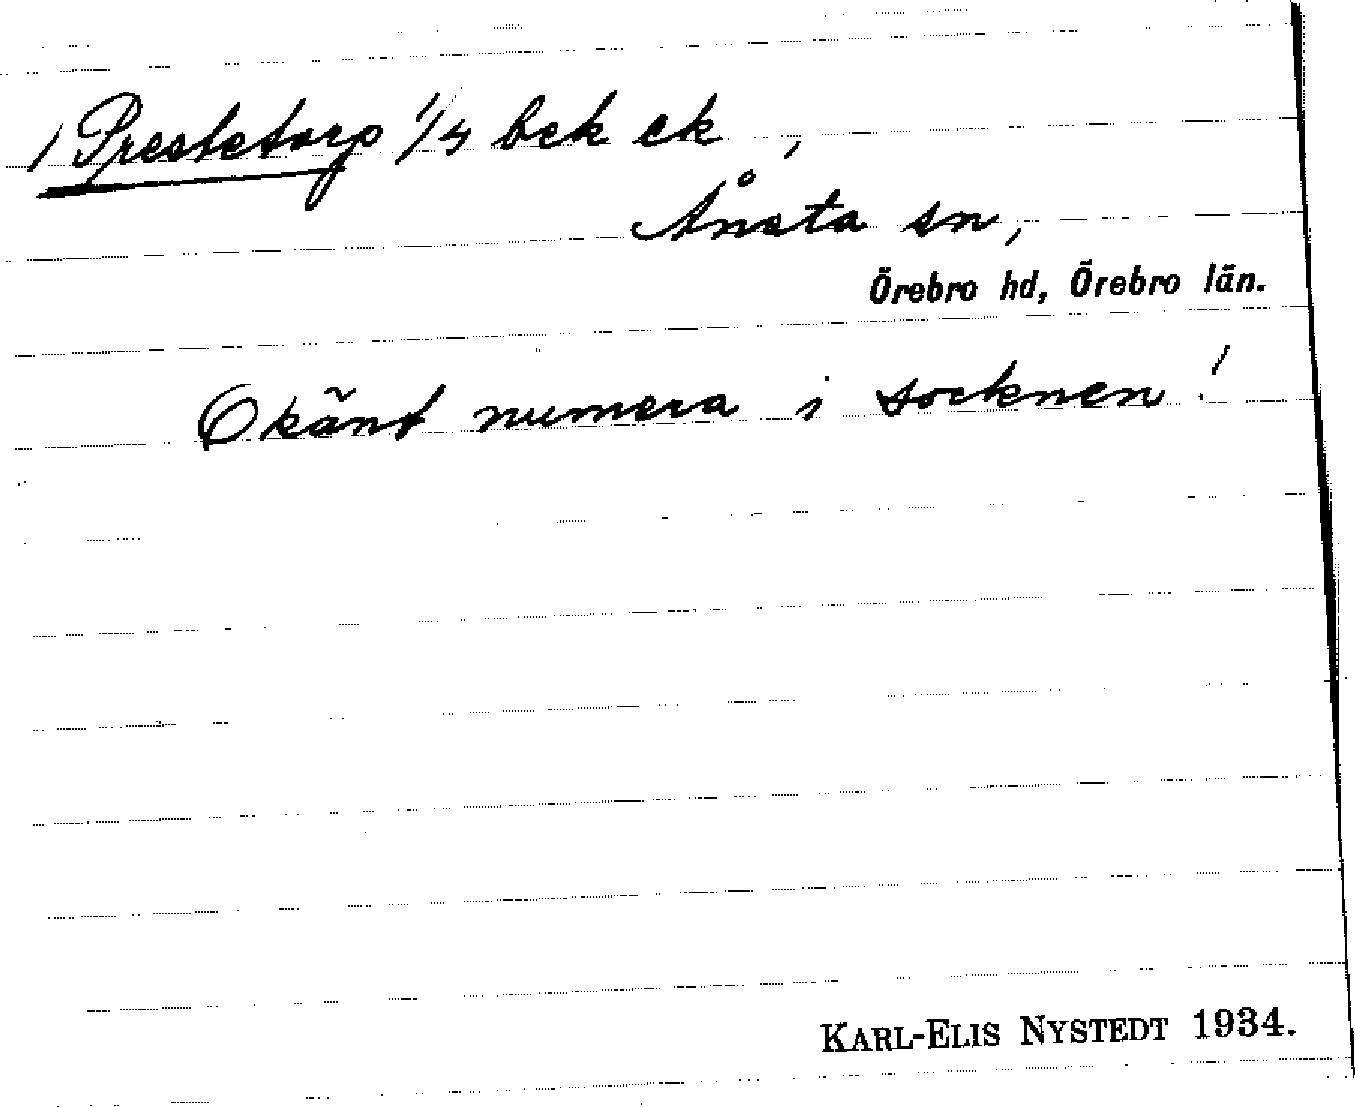 / Prestetorp 1/4 bek ek ,
Ånsta sn,
Örebro hd, Örebro län.
Okänt numera i socknen!
KARL-ELIS NYSTEDT 1934.